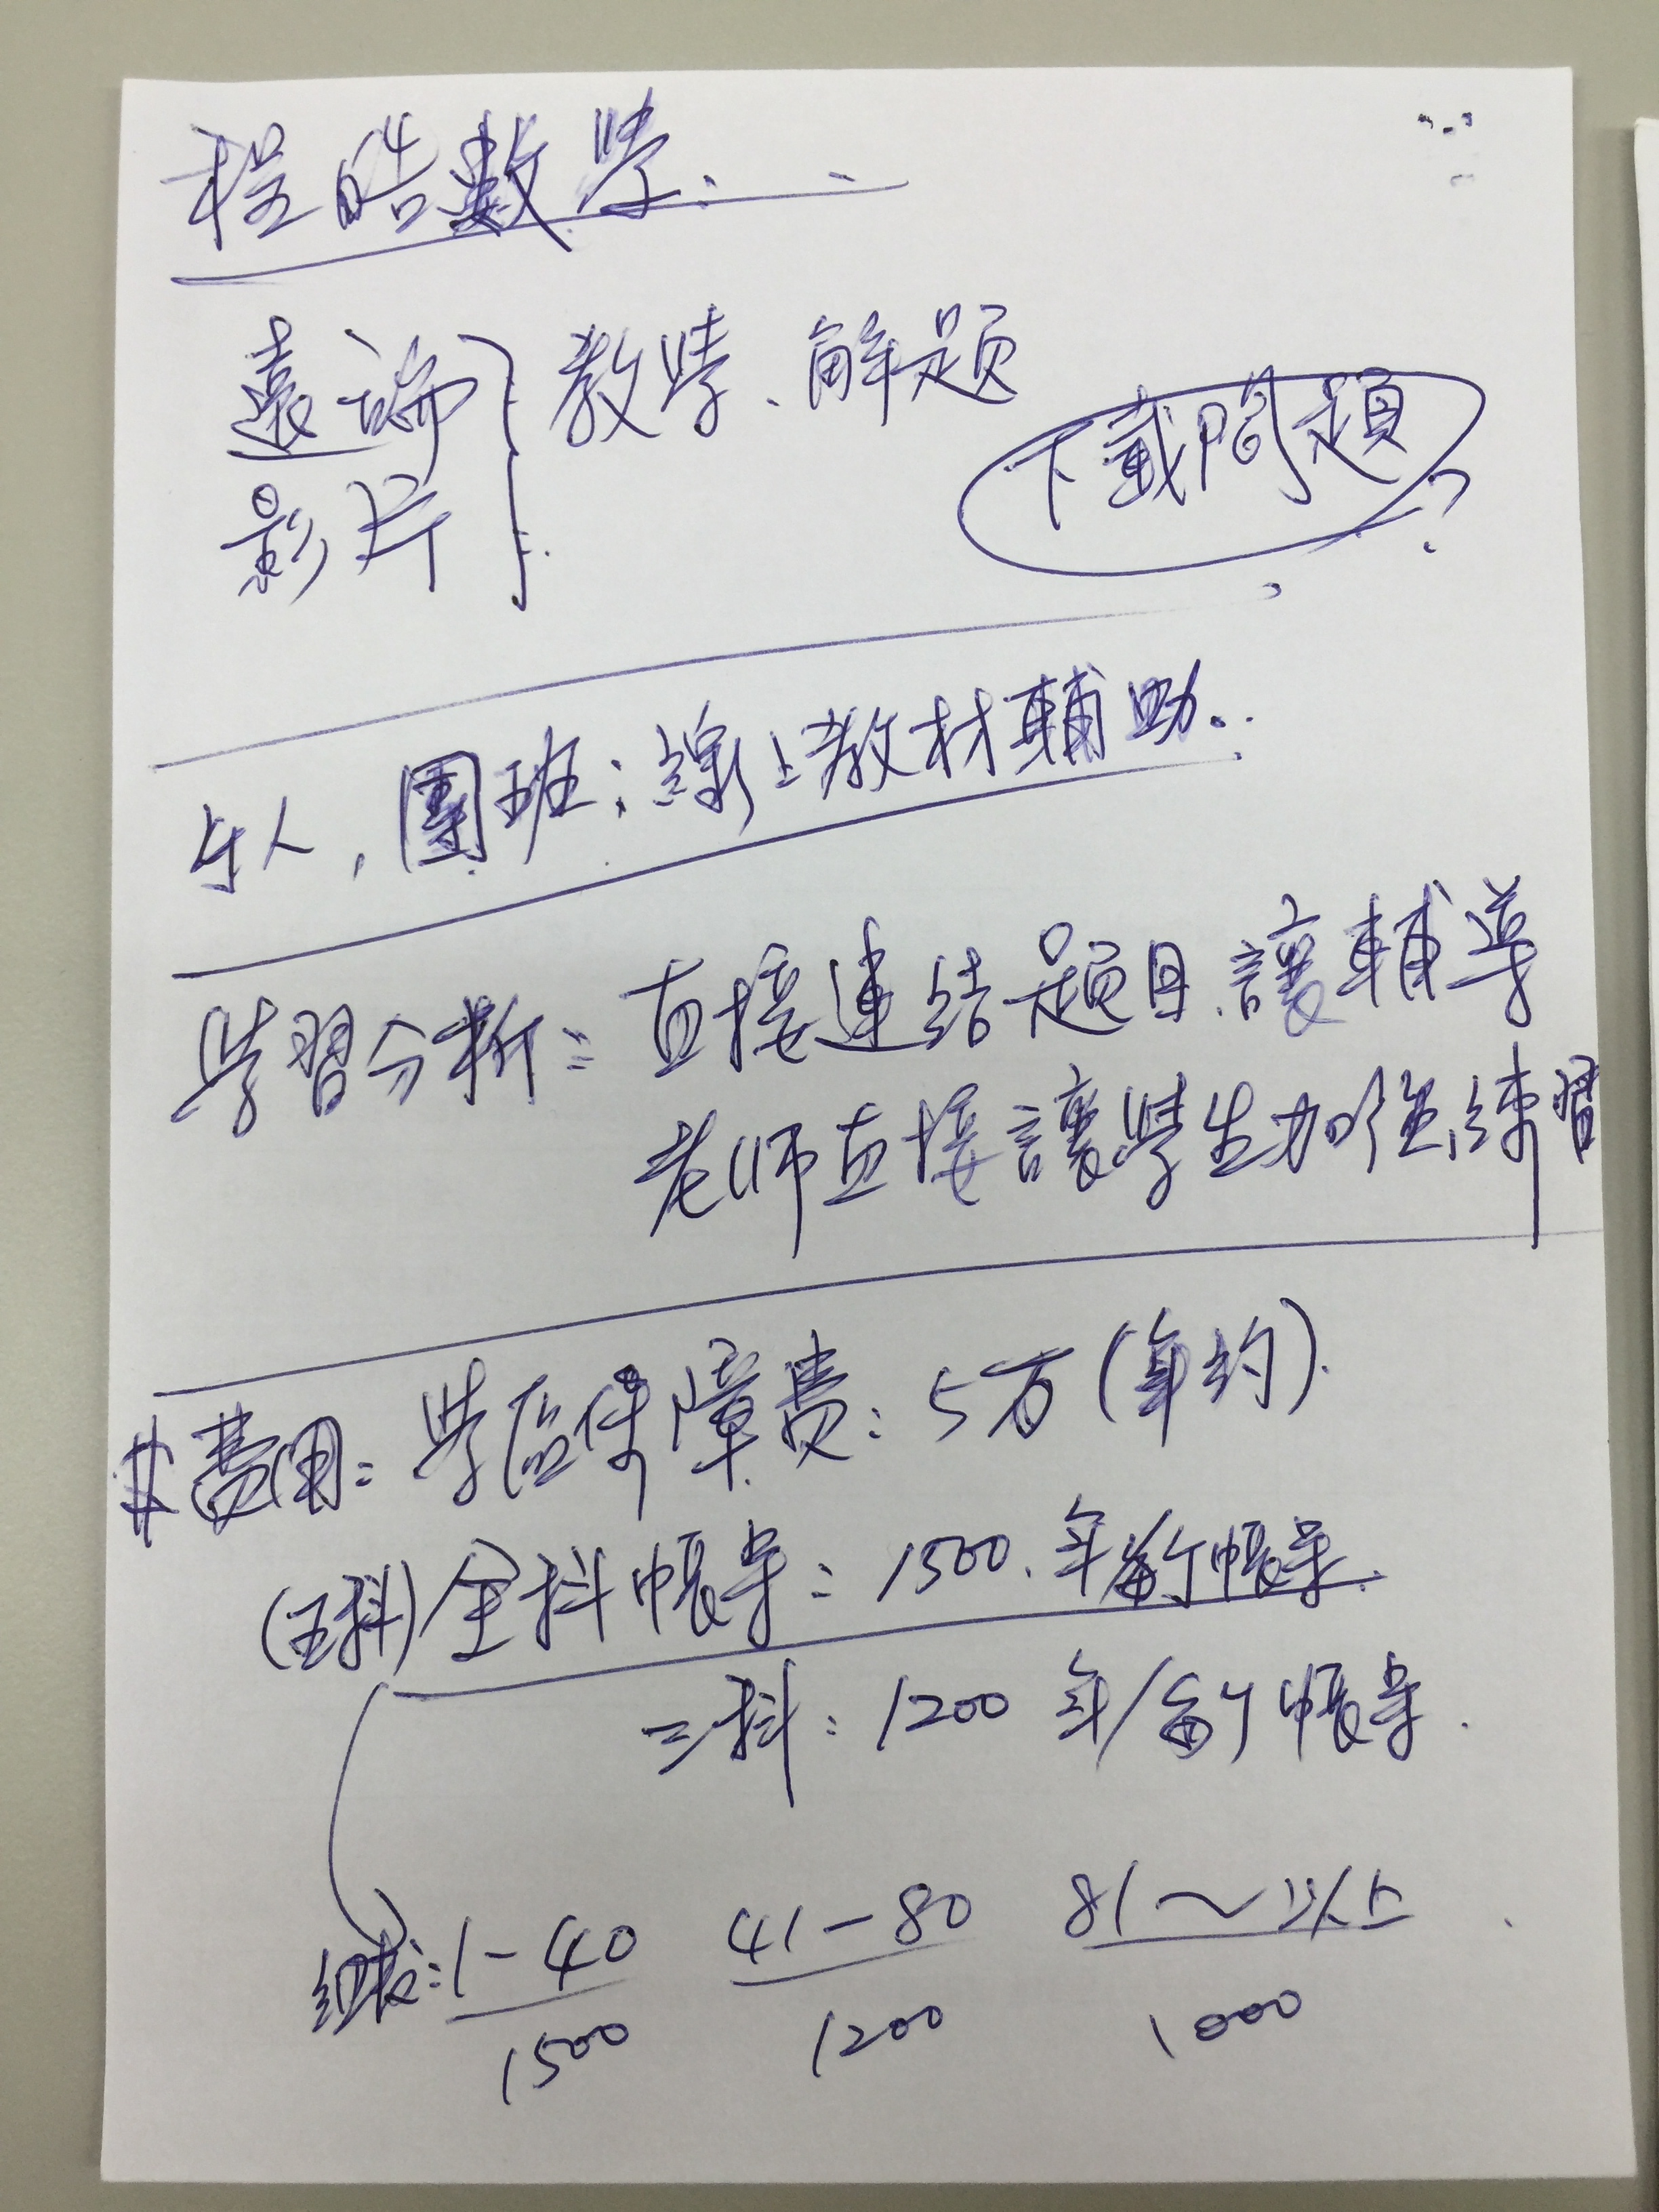 程皓數學:
遠端 教學、解題
影片
下載問題?
5人,團班:線上教材輔助..
學習分析:直接連結題目,讓輔導
老师直接讓學生加強練習
#費用:學區保障費:5万(年約).
(五科)全科帳号:1500.年/每个帳号.
三科:1200年/每个帳号.
級表:1-40 41-80 81~以上
1500 1200 1000